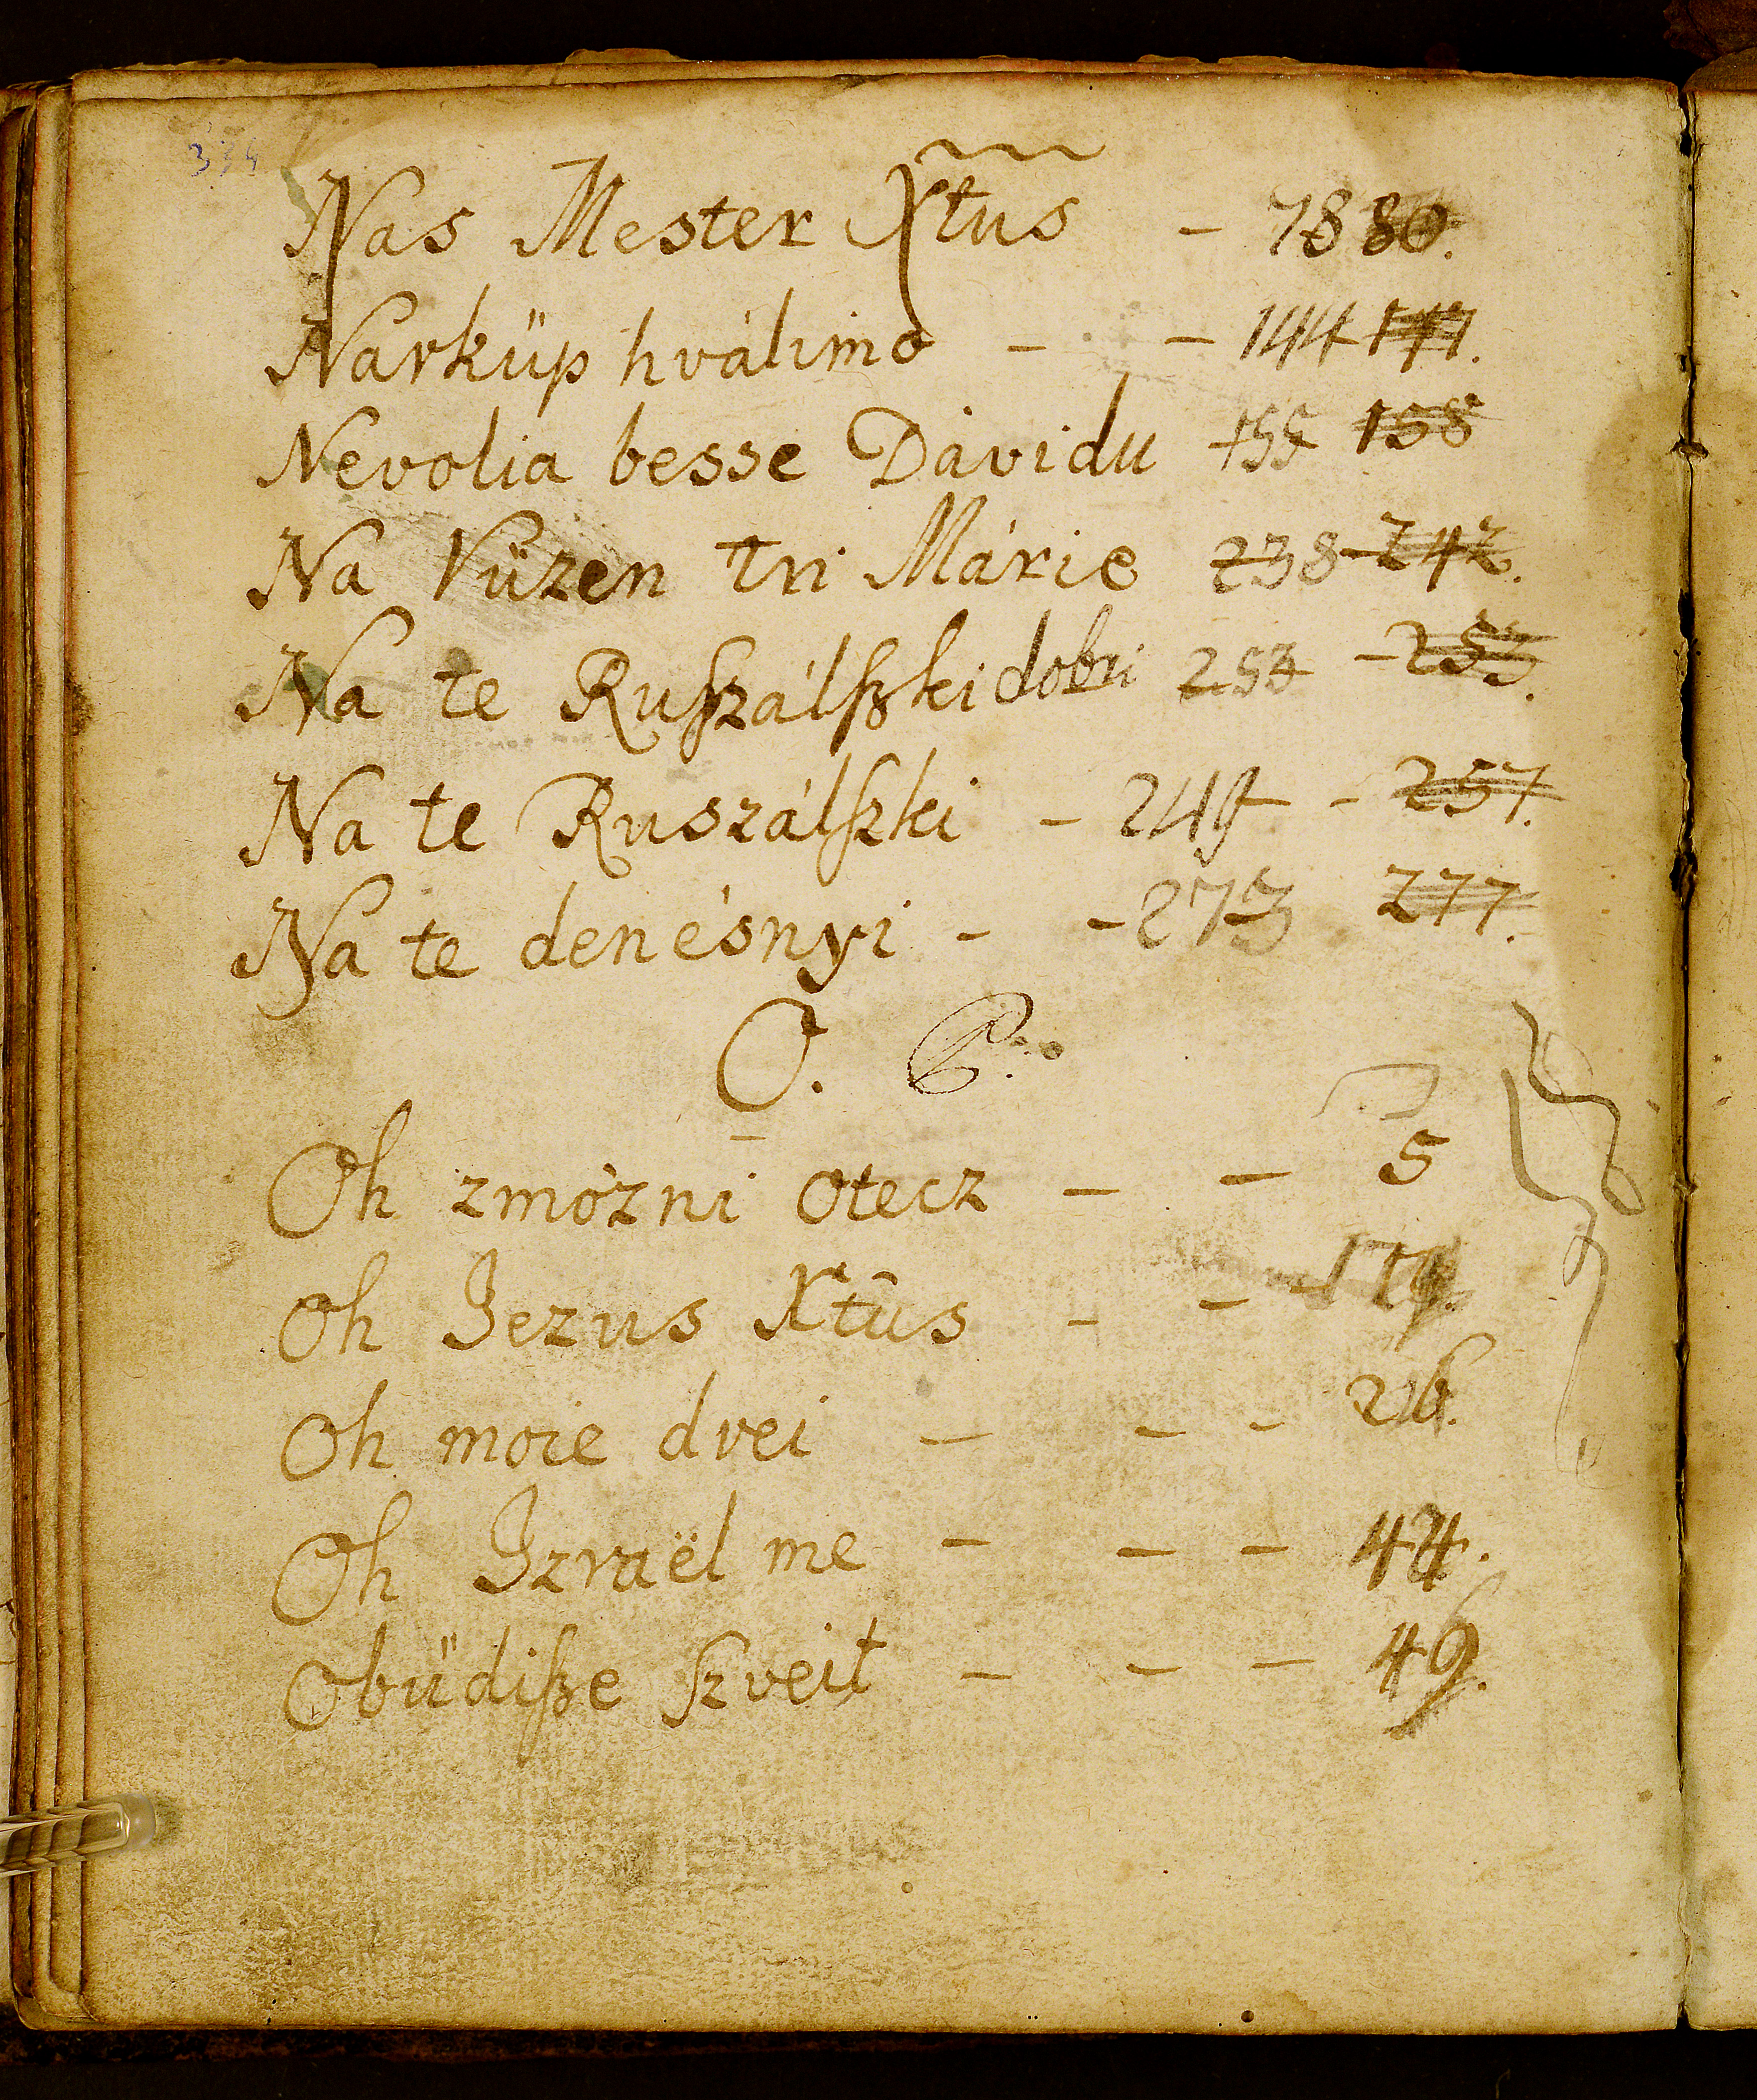 334
Nas Mester Xtus - 78 80.
Narküp hválimo - - 144 147.
Nevolia besse Dávidu 155 158
Na Vüzen tri Márie 238 - 242.
Na te Rusſzálſzki dobri 253 - 253.
Na te Ruszálſzki - 249 - 257.
Na te denésnyi - - 273 277.
O.
Oh zmózni otecz - - 5
Oh Jezus Xtûs - -
Oh moie drei - - - 26.
Oh Izraël me - - - 44.
Obüdiſze ſzveit - - - 49.